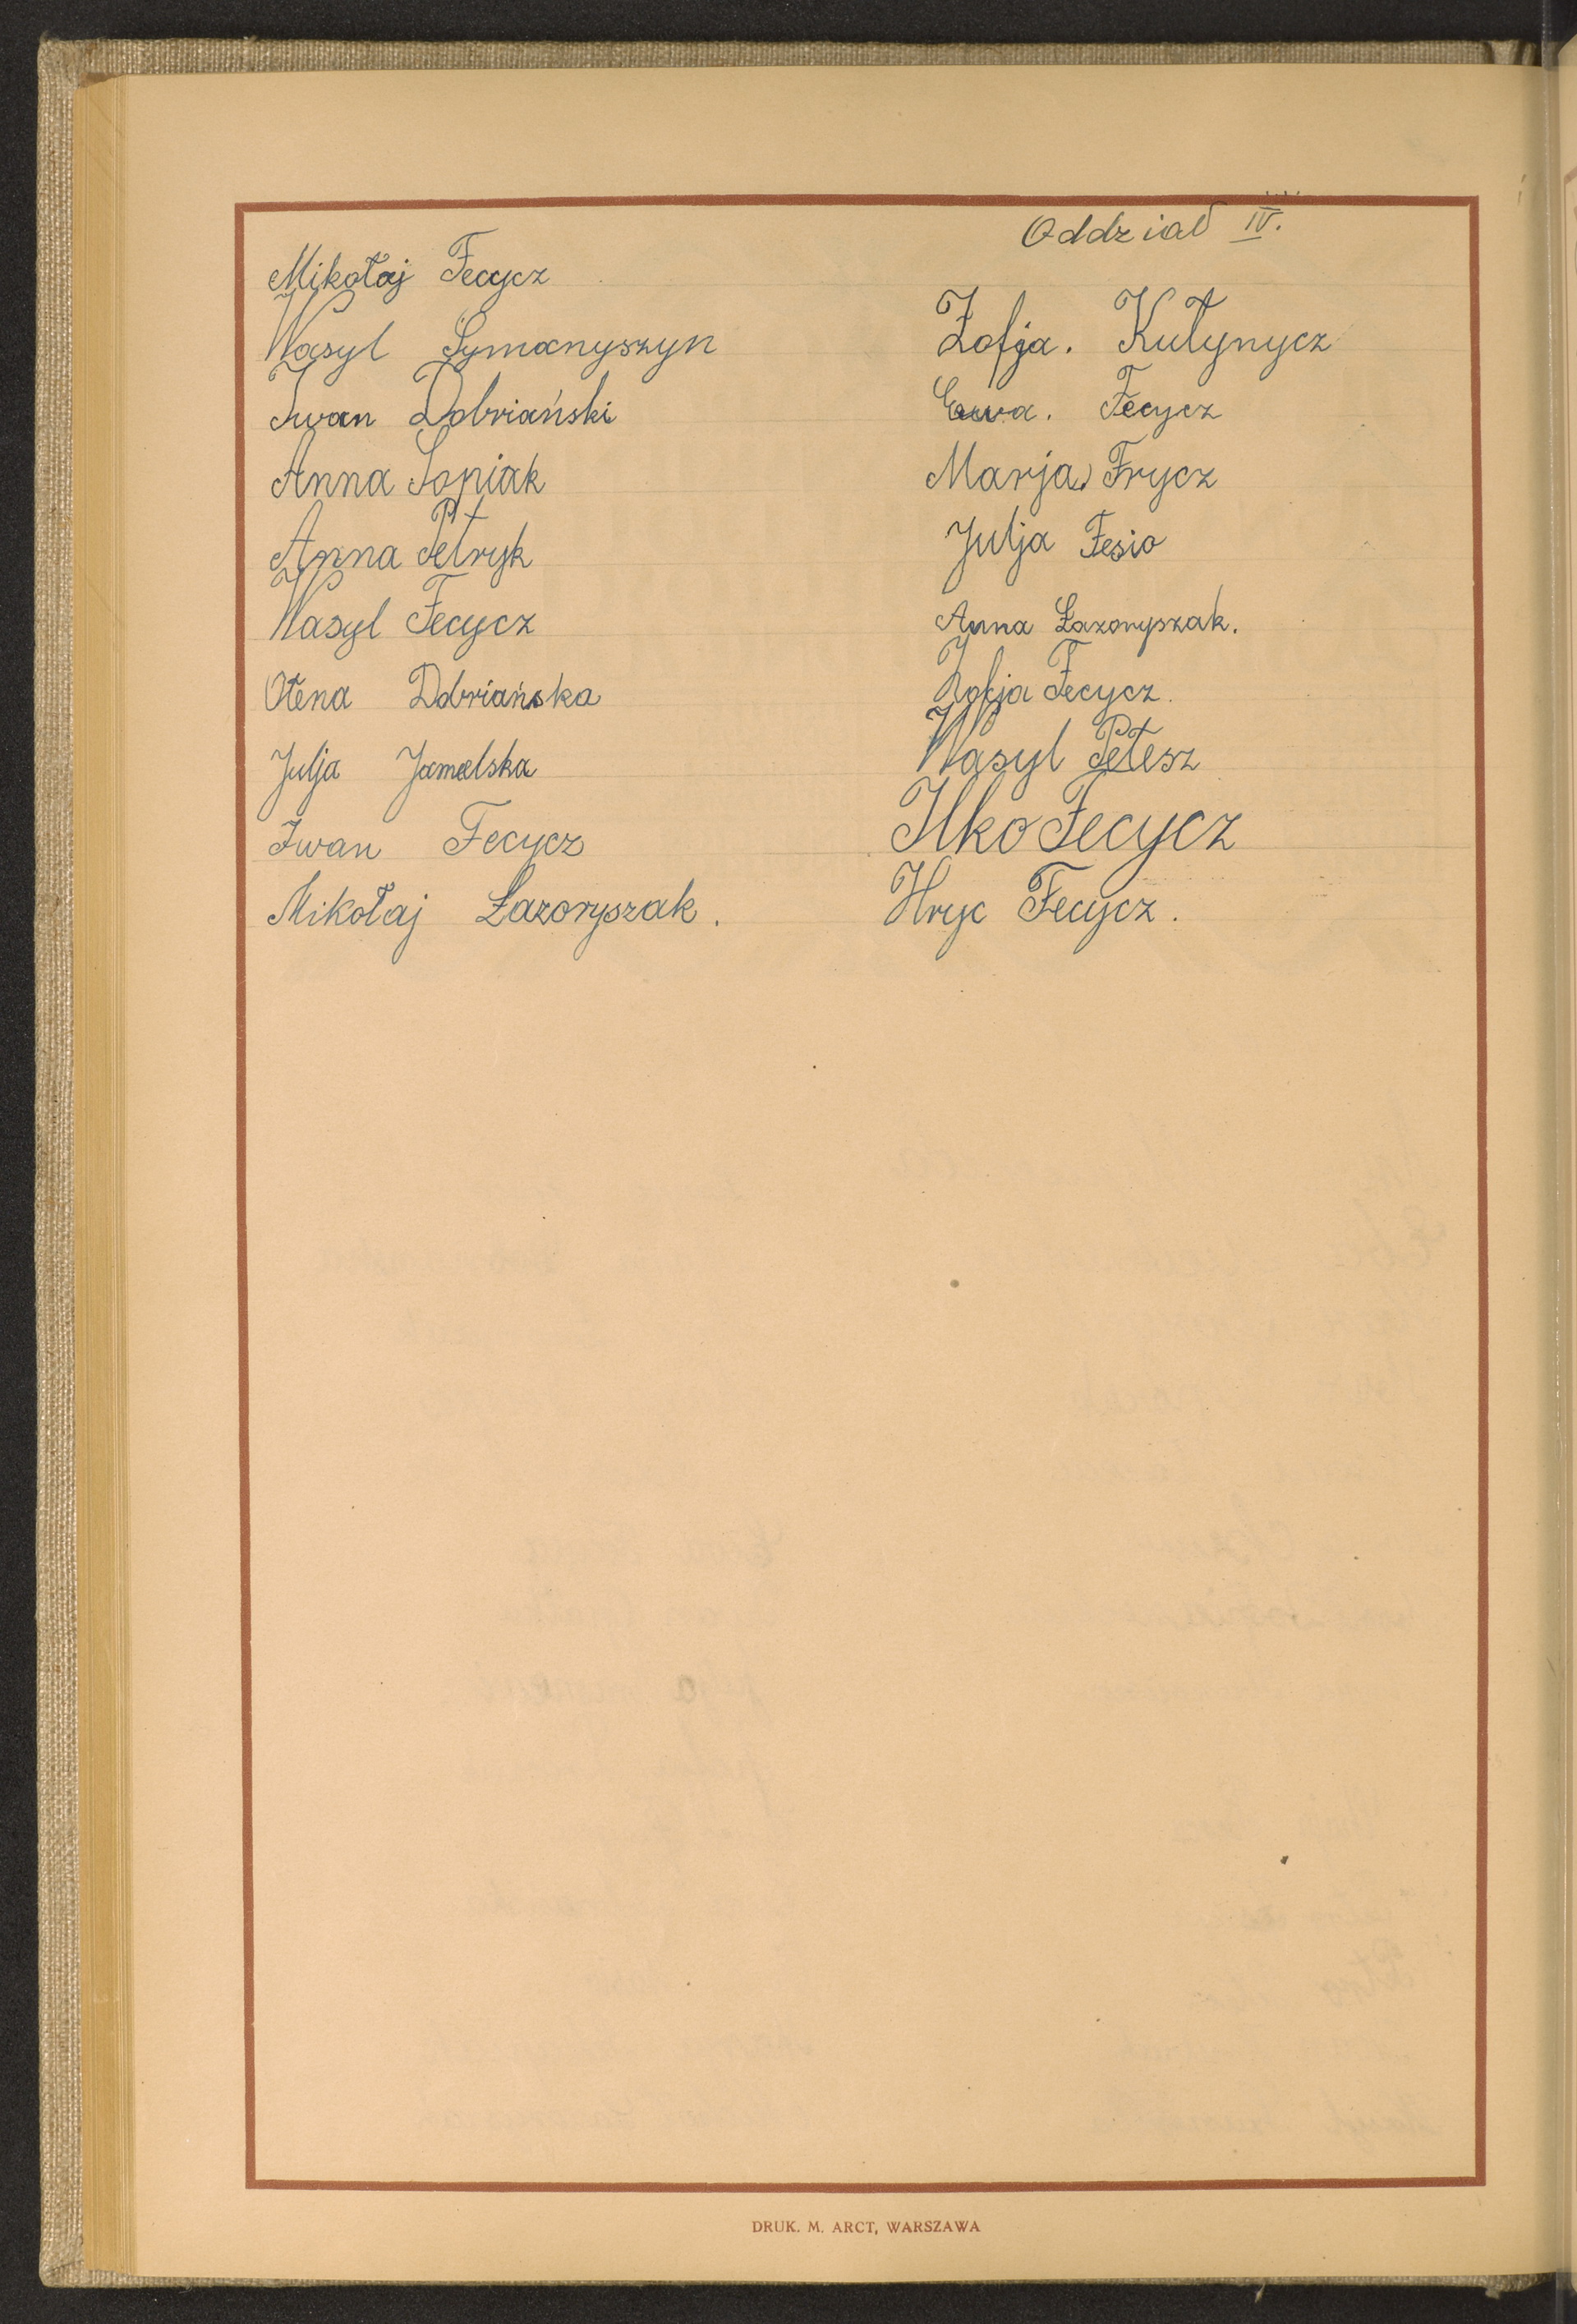 Mikołaj Fecycz
Wasyl Symanyszyn
Iwan Dobriański
Anna Sopiak
Anna Petryk
Wasyl Fecycz
Ołena Dobriańska
Julja Jamelska
Iwan Fecycz
Mikołaj Łazoryszak.
Oddział IV.
Zofja. Kutynycz
Ewa. Fecycz
Marja Frycz
Julja Fesio
Anna Łazoryszak.
Zofja Fecycz.
Wasyl Petesz
Ilko Fecycz
Hryc Fecycz.
DRUK. M. ARCT, WARSZAWA